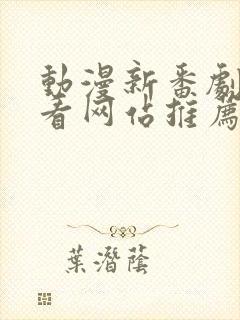 動漫新番劇
看网佔推薦
葉潛蔭